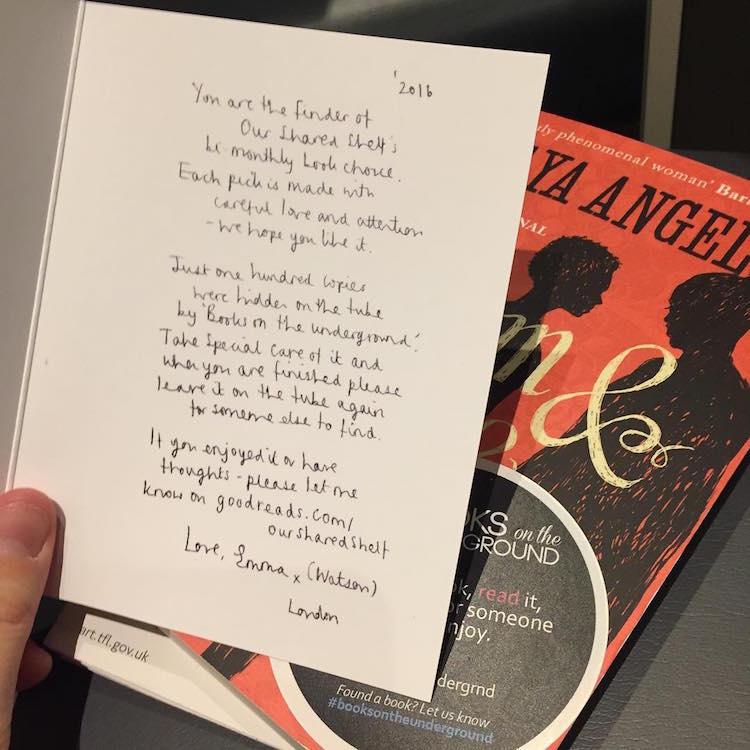 '2016
You are the finder of
Our Shared Shelf's
bi-monthly book choice.
Each pick is made with
careful love and attention
- we hope you like it.
Just one hundred copies
were hidden on the tube
by 'Books on the underground'.
Take special care of it and
when you are finished please
leave it on the tube again
for someone else to find.
If you enjoyed it or have
thoughts - please let me
know on goodreads.com/
oursharedshelf
Love, Emma x (Watson)
London
uly phenomenal woman' Bar
YA ANGEL
NAL
m &
KS on the
GROUND
k, read it,
r someone
njoy.
dergrnd
Found a book? Let us know
#booksontheunderground
art.tfl.gov.uk